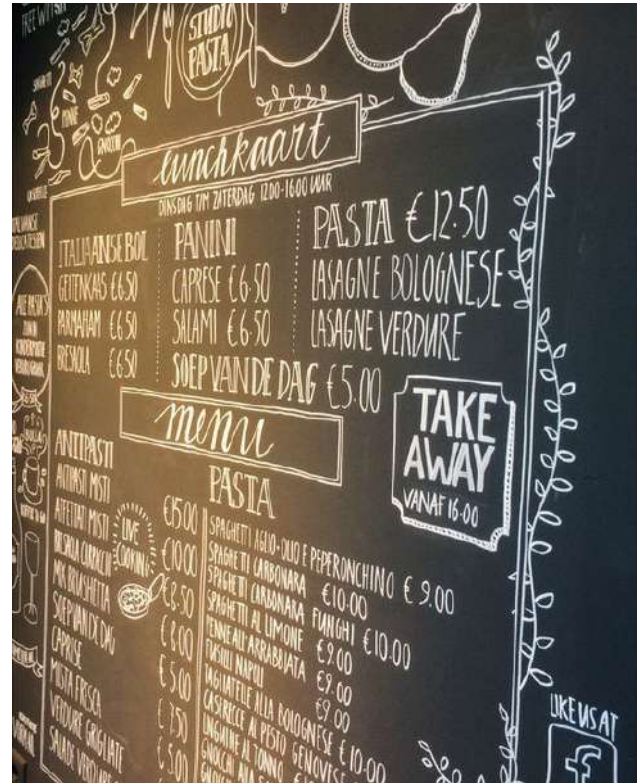 FREE WIFI
STUDIO
PASTA
SPAGHETTI
PENNE
GNOCCHI
lunchkaart
DINSDAG T/M ZATERDAG 12.00-16.00 UUR
ITALIAANSE BOL
GEITENKAAS €6.50
PARMAHAM €6.50
BRESAOLA €6.50
PANINI
CAPRESE €6.50
SALAMI €6.50
SOEP VAN DE DAG €5.00
PASTA €12.50
LASAGNE BOLOGNESE
LASAGNE VERDURE
ALLE PASTA'S
menu
TAKE
AWAY
VANAF 16.00
ANTIPASTI
ANTIPASTI MISTI €15.00
AFFETTATI MISTI €10.00
CARPACCIO €8.50
MIX BRUSCHETTA €8.00
SOEP VAN DE DAG €5.00
CAPRESE €7.50
MISTA FRESCA €5.00
VERDURE GRIGLIATE
SALADE VERDURE
LIVE
COOKING
PASTA
SPAGHETTI AGLIO-OLIO E PEPERONCHINO €9.00
SPAGHETTI CARBONARA €10.00
SPAGHETTI CARBONARA FUNGHI €10.00
SPAGHETTI AL LIMONE €9.00
PENNE ALL'ARRABBIATA €9.00
FUSILI NAPULI €9.00
TAGLIATELLE ALLA BOLOGNESE €10.00
CASERECCE AL PESTO GENOVESE
LINGUINE AL TONNO
GNOCCHI ALLA
LIKE US AT
f